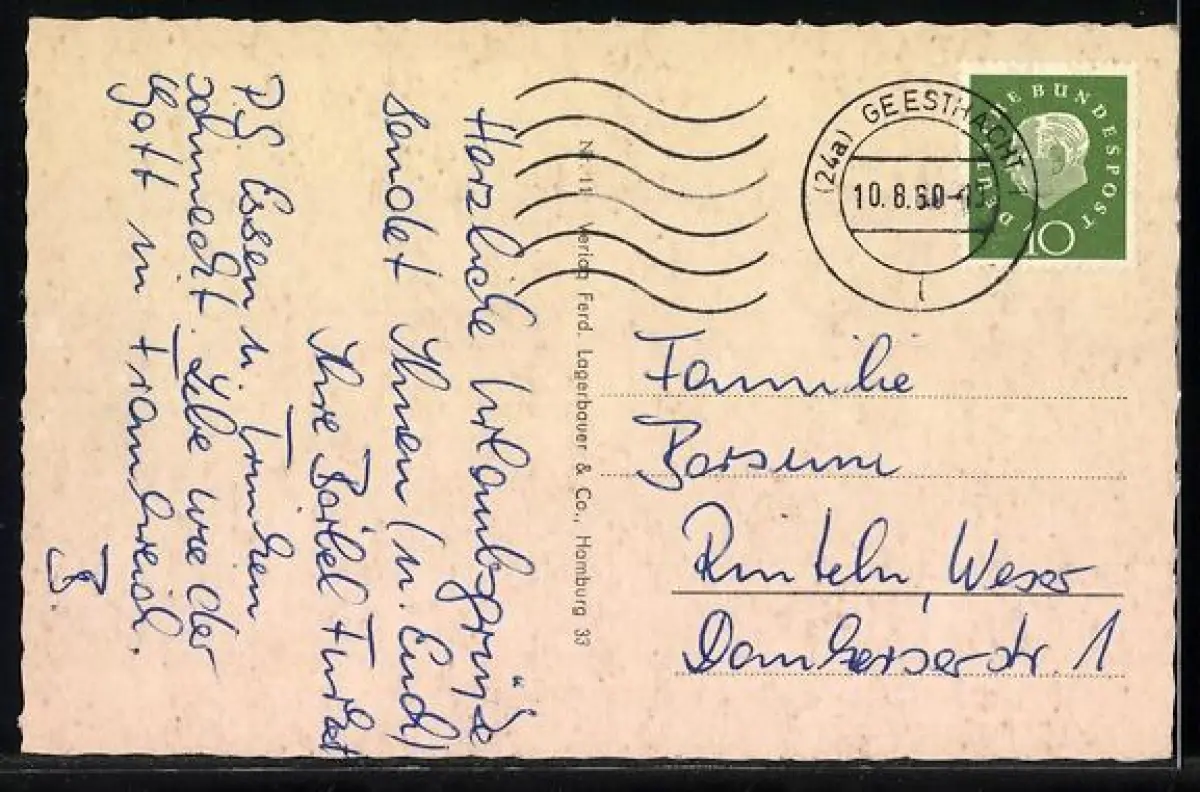 Herzliche Urlaubsgrüße
sendet Ihnen (u. Euch)
Ihre Bärbel
P.S Essen u. Trinken
schmeckt. Lebe wie der
Gott in Frankreich.
B.
Nr. 11 Verlag Ferd. Lagerbauer & Co., Hamburg 33
(24a) GEESTHACHT
10.8.60
1
DEUTSCHE BUNDESPOST
10
Familie
Borsum
Rinteln, Weser
Dankerserstr. 1